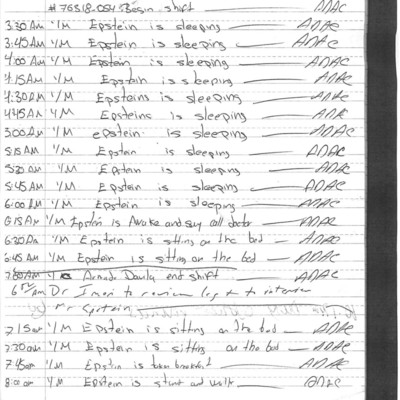 # 76318-054 Begin shift ADAC
3:30 AM I/M Epstein is sleeping ADAC
3:45 AM I/M Epstein is sleeping ADAC
4:00 AM I/M Epstein is sleeping ADAC
4:15 AM I/M Epstein is sleeping ADAC
4:30 AM I/M Epsteins is sleeping ADAC
4:45 AM I/M Epsteins is sleeping ADAC
5:00 AM I/M epstein is sleeping ADAC
5:15 AM I/M Epstein is sleeping ADAC
5:30 am I/M Epstein is sleeping ADAC
5:45 AM I/M Epstein is sleeping ADAC
6:00 AM I/M Epstein is sleeping ADAC
6:15 AM I/M Epstein is Awake and say call doctor ADAC
6:30 AM I/M Epstein is sitting on the bed ADAC
6:45 AM I/M Epstein is sitting on the bed ADAC
7:00 AM end shift ADAC
AM Dr to review log + to interview
Mr Epstein
7:15 am I/M Epstein is sitting on the bed ADAC
7:30 AM I/M Epstein is sitting on the bed ADAC
7:45 am I/M Epstein is breakfast ADAC
8:00 am I/M Epstein is and walk ADAC